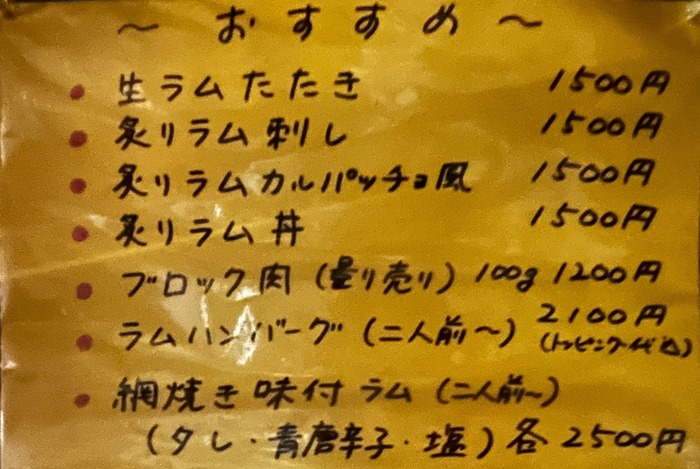 ～おすすめ～
● 生ラムたたき 1500円
● 炙りラム刺し 1500円
● 炙りラムカルパッチョ風 1500円
● 炙りラム丼 1500円
● ブロック肉(量り売り) 100g 1200円
● ラムハンバーグ(二人前～) 2100円
(トッピング代込)
● 網焼き味付ラム(二人前～)
(タレ・青唐辛子・塩)各2500円